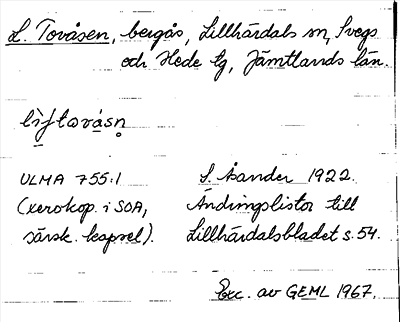 L. Tovåsen, bergås, Lillhärdals sn, Svegs
och Hede tg, Jämtlands län.
lìftωvåsn̥
ULMA 755:1 S. Åander 1922.
(xerokop. i SOA, Ändringslistor till
särsk. kapsel). Lillhärdalsbladet s. 54.
Exc. av GEML 1967.